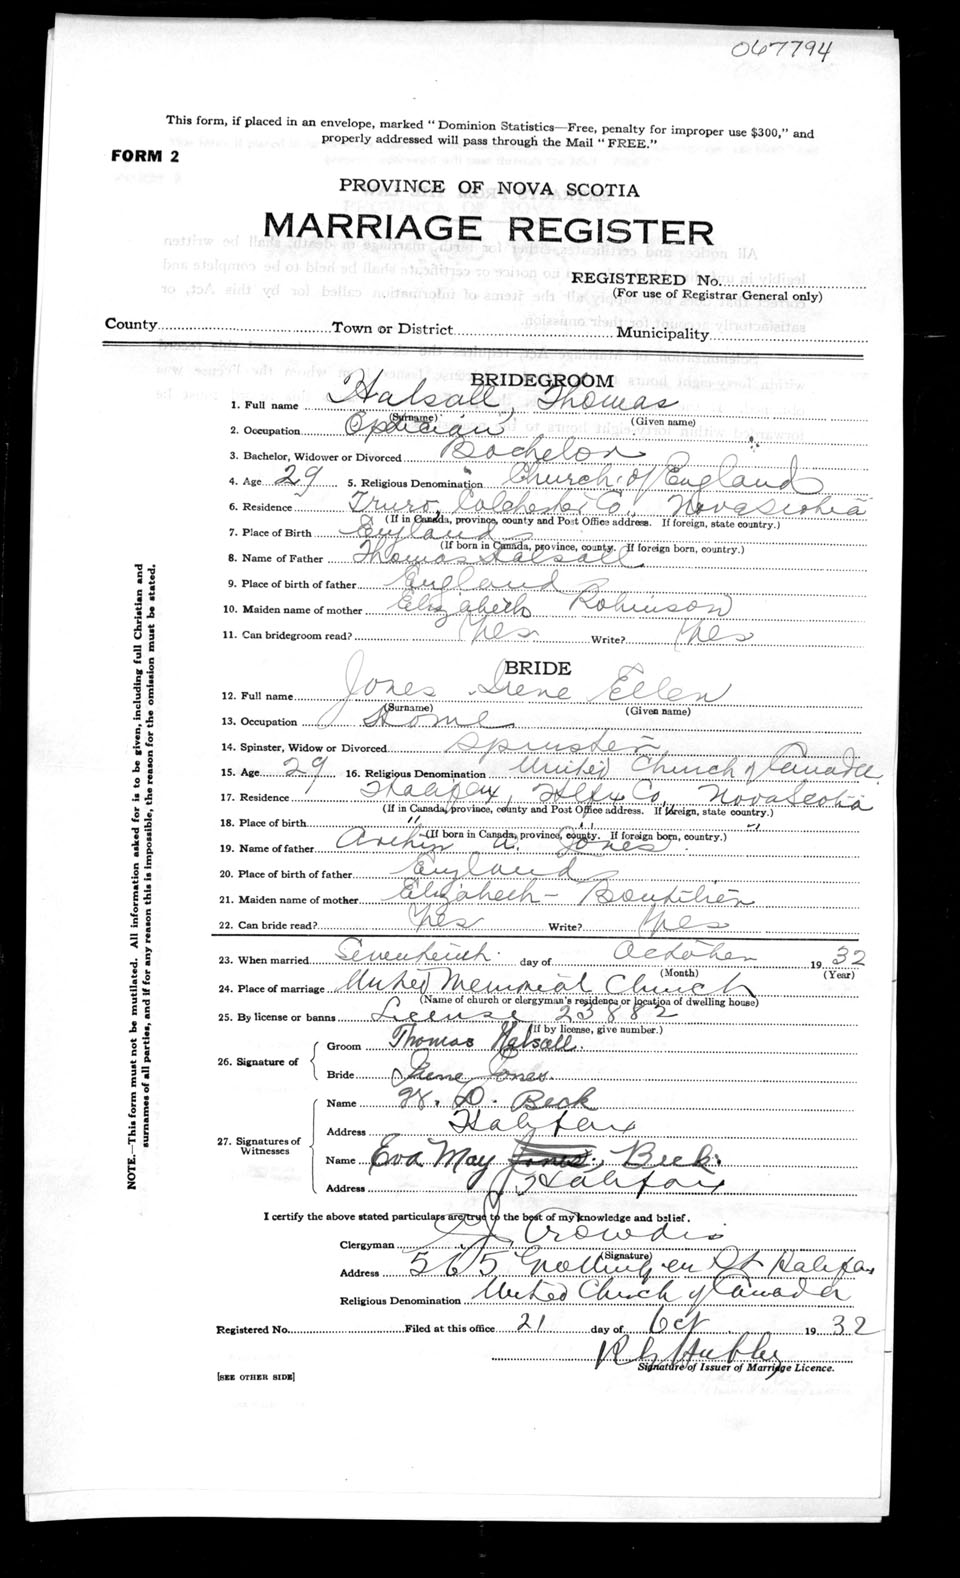 067794
This form, if placed in an envelope, marked "Dominion Statistics—Free, penalty for improper use $300," and
properly addressed will pass through the Mail "FREE."
FORM 2
PROVINCE OF NOVA SCOTIA
MARRIAGE REGISTER
REGISTERED No.
(For use of Registrar General only)
County Town or District Municipality
BRIDEGROOM
1. Full name Halsall, Thomas
(Surname) (Given name)
2. Occupation Optician
3. Bachelor, Widower or Divorced Bachelor
4. Age 29 5. Religious Denomination Church of England
6. Residence Truro, Colchester Co., Nova Scotia
(If in Canada, province, county and Post Office address. If foreign, state country.)
7. Place of Birth England
(If born in Canada, province, county. If foreign born, country.)
8. Name of Father Thomas Halsall
9. Place of birth of father England
10. Maiden name of mother Elizabeth Robinson
11. Can bridegroom read? Yes Write? Yes
BRIDE
12. Full name Jones Irene Ellen
(Surname) (Given name)
13. Occupation Home
14. Spinster, Widow or Divorced Spinster
15. Age 29 16. Religious Denomination United Church of Canada
17. Residence Halifax Hfx Co, Nova Scotia
(If in Canada, province, county and Post Office address. If foreign, state country.)
18. Place of birth " " "
(If born in Canada, province, county. If foreign born, country.)
19. Name of father A. Jones
20. Place of birth of father England
21. Maiden name of mother Elizabeth Boutilier
22. Can bride read? Yes Write? Yes
23. When married Seventeenth day of October 1932
(Month) (Year)
24. Place of marriage United Memorial Church
(Name of church or clergyman's residence or location of dwelling house)
25. By license or banns License 23882
(If by license, give number.)
26. Signature of Groom Thomas Halsall
Bride Irene Jones
27. Signatures of Witnesses Name D. Beck
Address Halifax
Name Eva May Jones, Beck
Address Halifax
I certify the above stated particulars are true to the best of my knowledge and belief.
Clergyman Crowdis
(Signature)
Address 565 Gottingen St Halifax
Religious Denomination United Church of Canada
Registered No. Filed at this office 21 day of Oct 1932
Hubley
Signature of Issuer of Marriage Licence.
[SEE OTHER SIDE]
NOTE.—This form must not be mutilated. All information asked for is to be given, including full Christian and
surnames of all parties, and if for any reason this is impossible, the reason for the omission must be stated.